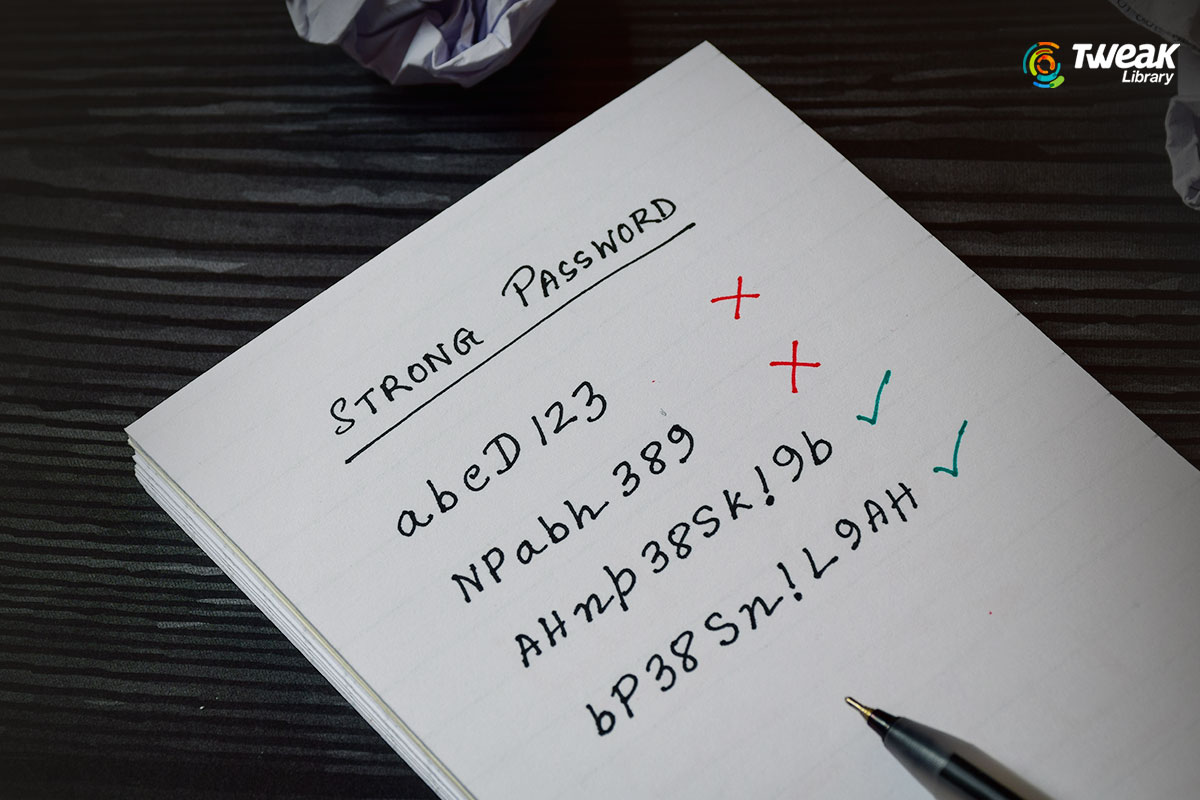 TWEAK
Library
STRONG PASSWORD
abcD123
NPabh389
AHnp38Sk!9b
bP38Sn!L9AH